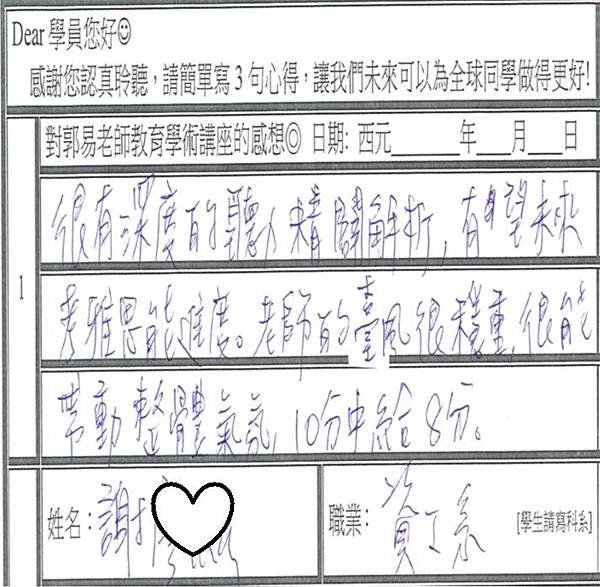 Dear 學員您好☺
感謝您認真聆聽，請簡單寫 3 句心得，讓我們未來可以為全球同學做得更好!
對郭易老師教育學術講座的感想◎ 日期: 西元______年___月___日
1
很有深度的聽力精闢解析，有望未來
考雅思能進度。老師的臺風很穩重，很能
帶動整體氣氛，10分中給8分。
姓名： 謝 職業： 資工系 [學生請寫科系]